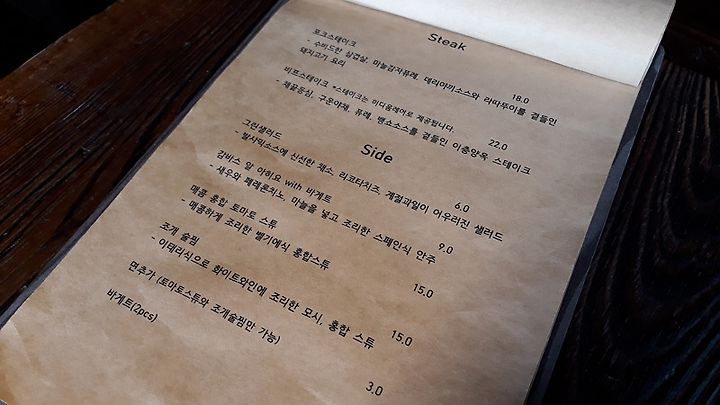 Steak
포크스테이크
- 수비드한 삼겹살, 마늘감자퓨레, 데리야끼소스와 라따뚜이를 곁들인
돼지고기 요리
18.0
비프스테이크 *스테이크는 미디움레어로 제공됩니다.
- 채끝등심, 구운야채, 퓨레, 뱅쇼소스를 곁들인 이충양옥 스테이크
22.0
Side
그린샐러드
- 발사믹소스에 신선한 채소, 리코타치즈, 계절과일이 어우러진 샐러드
6.0
감바스 알 아히요 with 바게트
- 새우와 페페론치노, 마늘을 넣고 조리한 스페인식 안주
9.0
매콤 홍합 토마토 스튜
- 매콤하게 조리한 벨기에식 홍합스튜
15.0
조개 술찜
- 이태리식으로 화이트와인에 조리한 모시, 홍합 스튜
15.0
면추가 (토마토스튜와 조개술찜만 가능)
바게트(2pcs)
3.0